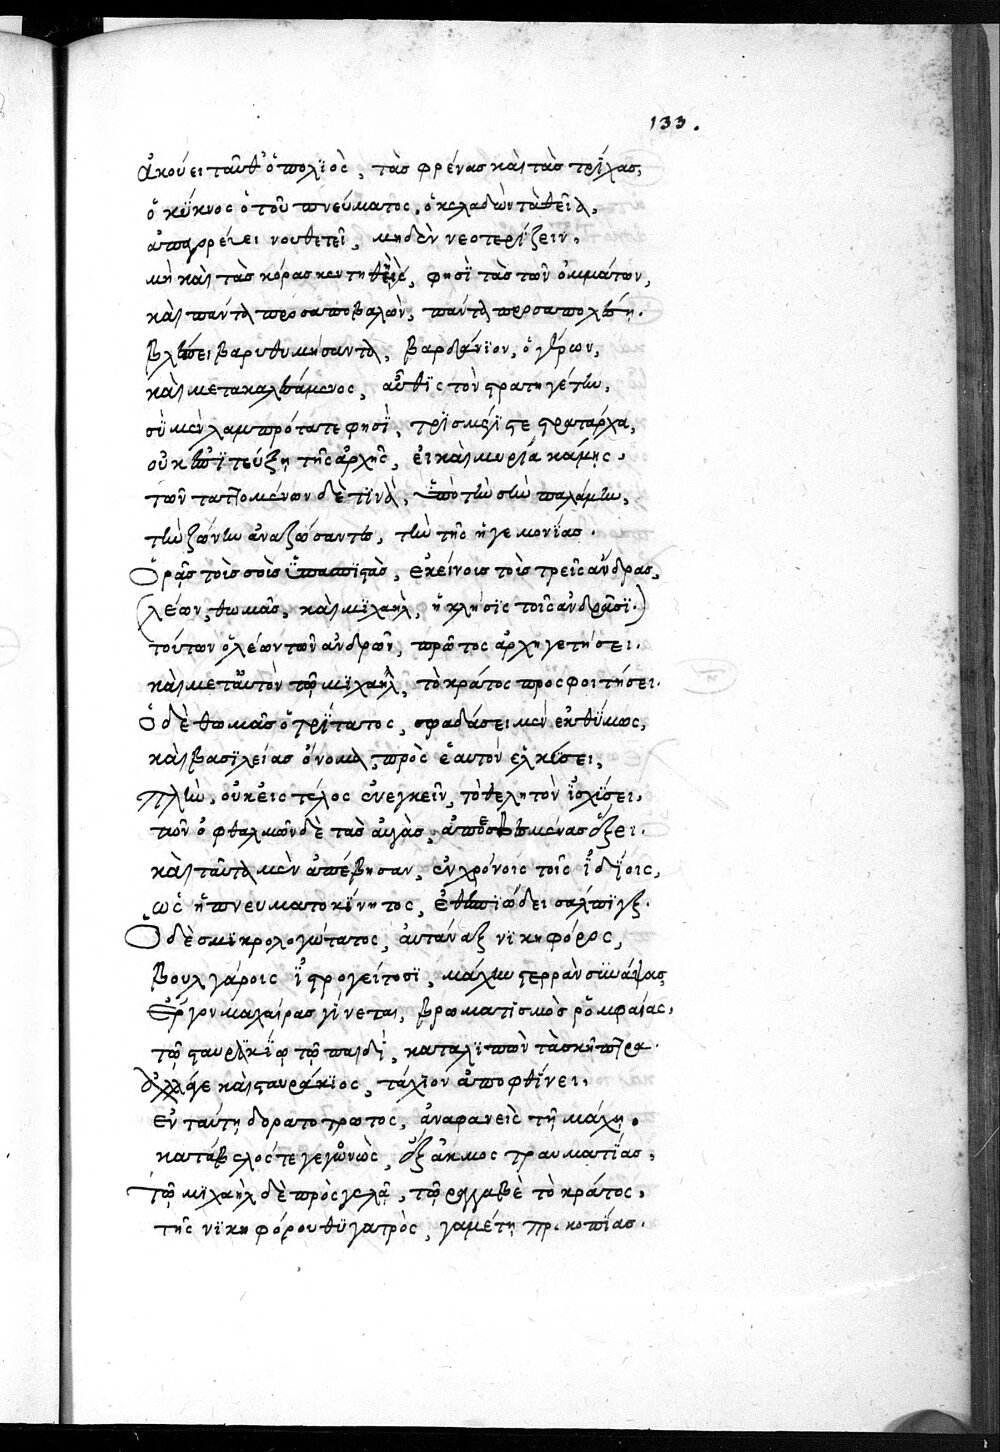 133.
ἀκούει ταῦθ' ὁ πολϊὸς, τὰς φρένας καὶ τὰς τρίχας,
ὁ κύκνος ὁ τοῦ πνεύματος, ὁ κελαδῶν τὰ θεῖα,
ἀπαγορεύει νουθετεῖ, μηδὲν νεοτερίζειν,
μὴ καὶ τὰς κόρας κεντηθῇς, φησὶ τὰς τῶν ὀμμάτων,
καὶ πάντα προσαποβαλὼν, πάντα προσαπολέσῃ.
βλέπει βαρυθυμήσαντα, βαρδάνϊον, ὁ γέρων,
καὶ μετακαλεσάμενος, αὖθϊς τὸν στρατηγέτην,
σὺ μὲν λαμπρότατε φησὶ, τρὶς μέγϊστε στρατάρχα,
οὐκ ἐπϊτεύξῃ τῆς ἀρχῆς, εἰ καὶ μυρία κάμῃς.
τῶν ταττομένων δὲ τϊνὰ, ὑπὸ τὴν σὴν παλάμην,
τὴν ζώνην ἀναζώσαντα, τὴν τῆς ἡγεμονίας.
Ὁρᾷς τοὺς σοὺς ὑπασπϊστὰς, ἐκείνους τοὺς τρεῖς ἄνδρας,
(λέων, θωμᾶς, καὶ μϊχαὴλ, ἡ κλῆσϊς τοῖς ἀνδράσϊ.)
τούτων ὁ λέων τῶν ἀνδρῶν, πρῶτος ἀρχηγετήσει.
καὶ μετ' αὐτὸν τῷ μϊχαὴλ, τὸ κράτος προσφοιτήσει.
Ὁ δὲ θωμᾶς ὁ τρίτατος, σφαδάσει μὲν ἐκθύμως,
καὶ βασϊλείας ὄνομα, πρὸς ἑαυτὸν ἑλκύσει,
πλὴν, οὐκ εἰς τέλος ἐνεγκεῖν, τὸ θελητὸν ἰσχύσει.
τῶν ὀφθαλμῶν δὲ τὰς αὐγὰς, ἀπεσβεσμένας ἕξει.
καὶ ταῦτα μὲν ἀπέβησαν, ἐν χρόνοις τοῖς ἰδίοις,
ὡς ἡ πνευματοκίνητος, ἐθέσπϊῳδει σάλπϊγξ.
Ὁ δὲ σμϊκρολογώτατος, αὐτάναξ νϊκηφόρος,
βουλγάροις ἰστρογείτοσϊ, μάχην στερρὰν συνάψας,
ἔργον μαχαίρας γίνεται, βρωματϊσμὸς ῥομφαίας,
τῷ σταυρακίῳ τῷ παιδὶ, καταλϊπὼν τὰ σκῆπτρα.
ἀλλάγε καὶ σταυράκϊος, τάχϊον ἀποφθίνει,
ἐν ταύτῃ δορατότρωτος, ἀναφανεὶς τῇ μάχῃ.
κατὰ βέλος τε γεγονὼς, ὀξάκμος τραυματίας,
τῷ μϊχαὴλ δὲ πρὸς γελᾷ, τῷ ῥαγγαβὲ τὸ κράτος,
τῆς νϊκηφόρου θυγατρὸς, γαμέτῃ προκοπίας.